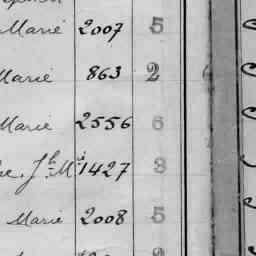 Marié 2007 5
Marié 863 2
Marié 2556 6
Jh M 1427 3
Marié 2008 5